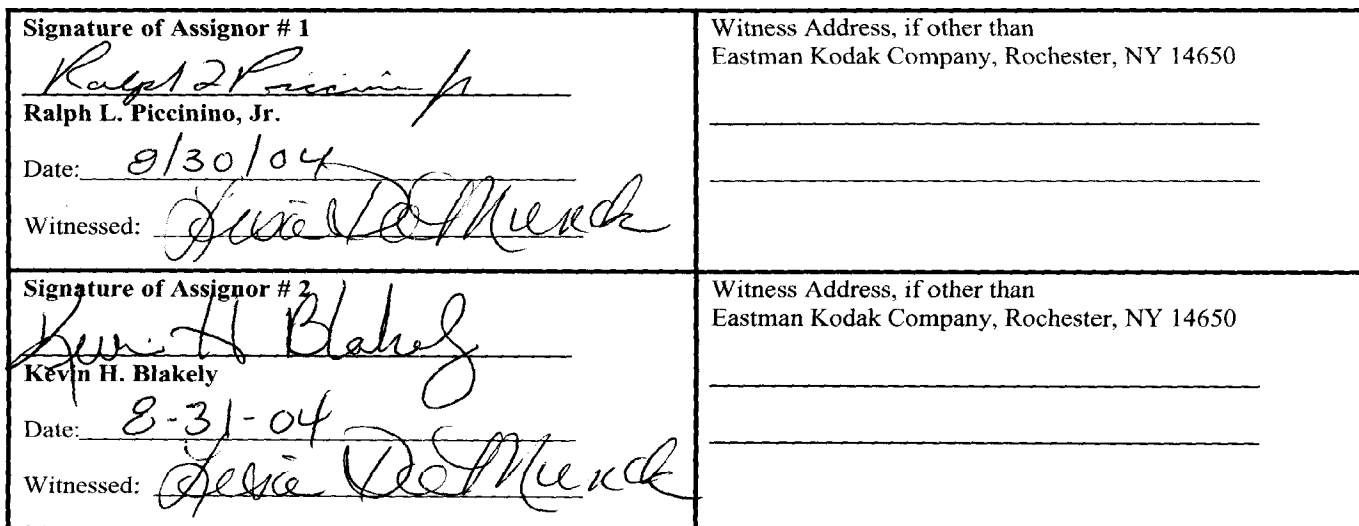 Signature of Assignor # 1
Ralph L Piccinino Jr
Ralph L. Piccinino, Jr.
Date: 8/30/04
Witnessed: De Munck
Witness Address, if other than
Eastman Kodak Company, Rochester, NY 14650
Signature of Assignor # 2
Kevin H Blakely
Kevin H. Blakely
Date: 8-31-04
Witnessed: De Munck
Witness Address, if other than
Eastman Kodak Company, Rochester, NY 14650